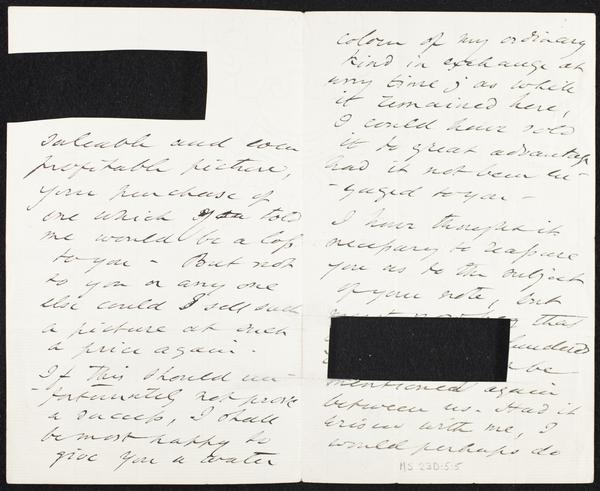 saleable and even
profitable picture,
your purchase of
one which you told
me would be a loss
to you - But not
to you or any one
else could I sell such
a picture at such
a price again.
If this should un-
-fortunately not prove
a success, I shall
be most happy to
give you a water
colour of my ordinary
kind in exchange at
any time; as while
it remained here,
I could have sold
it to great advantage
had it not been en-
-gaged to you -
I have thought it
necessary to reassure
you as to the subject
of your note, but
that
be
mentioned again
between us. Had it
arisen with me, I
would perhaps do
MS 23D.5.5